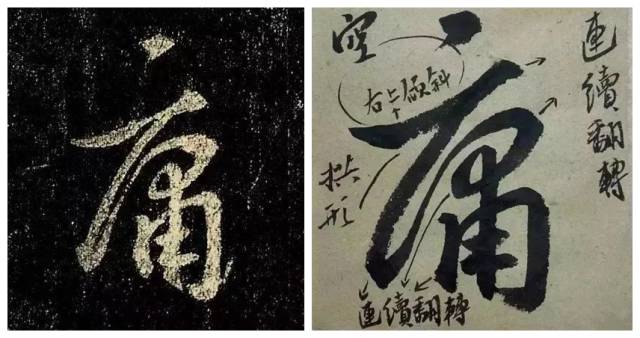 庸
庸
空
右上傾斜
拱形
連續翻轉
連續翻轉